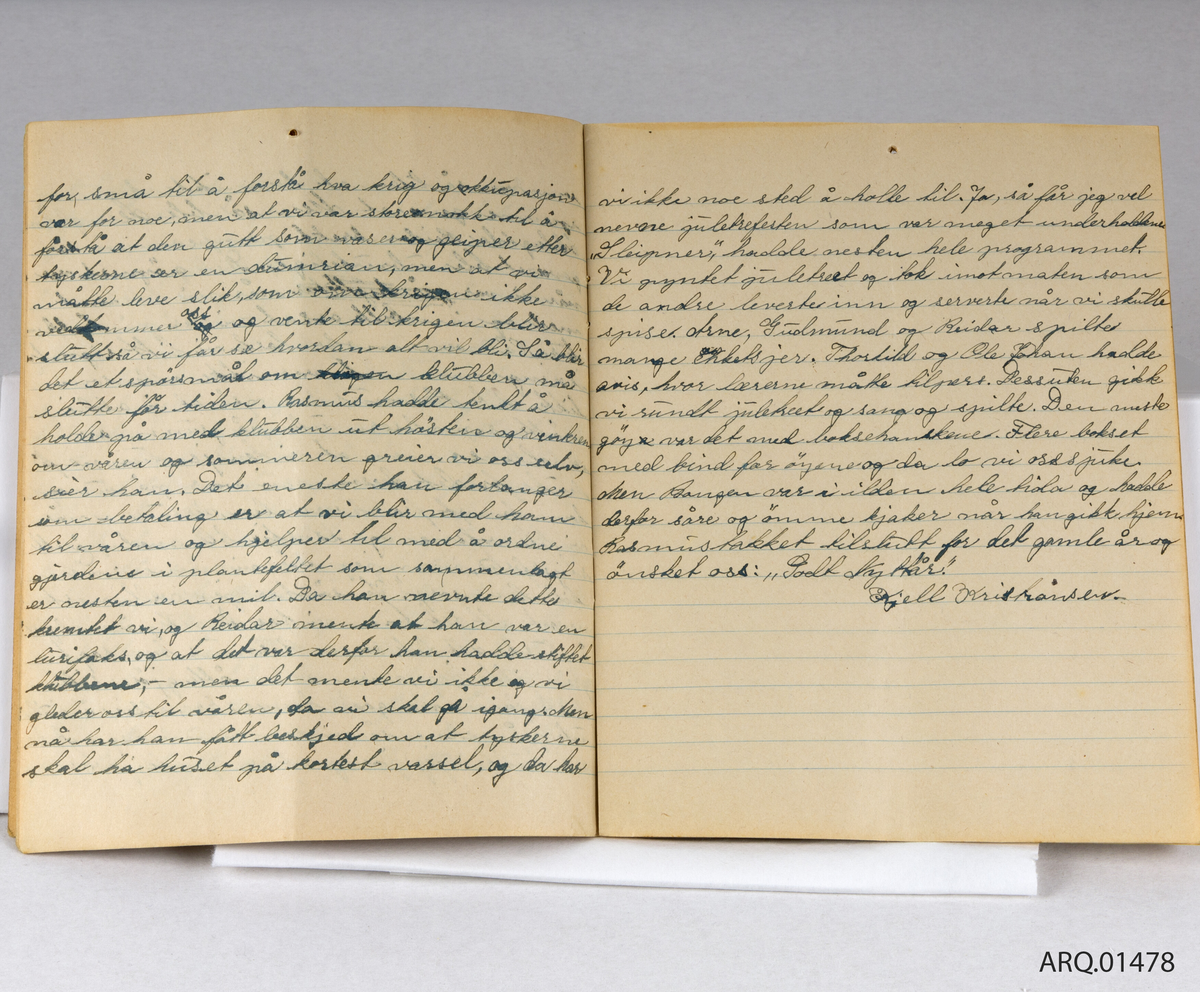 for små til å forstå hva krig og okkupasjon
var for noe, men at vi var store nokk til å
förstå at den gutt som roser og geiper etter
tyskerne er en dumrian, men at vi
måtte leve slik, som om krigen ikke
vedkommer oss og vente til krigen blir
slutt så vi får se hvordan alt vil bli. Så blir
det et spörsmål om klubben må
slutte før tiden. Rasmus hadde tenkt å
holde på med klubben ut hösten og vinteren
om våren og sommeren greier vi oss selv,
sier han. Det eneste han forlanger
som betaling er at vi blir med ham
til våren og hjelper til med å ordne
gjerdene i plantefeltet som sammenlagt
er nesten en mil. Da han nevnte dette
kremtet vi, og Reidar mente at han var en
lurifaks, og at det var derfor han hadde stiftet
klubbene, - men det mente vi ikke og vi
gleder oss til våren, da vi skal gå igang. Men
nå har han fått beskjed om at tyskerne
skal ha huset på kortest varsel, og da har
vi ikke noe sted å holle til. Ja, så får jeg vel
nevne juletrefesten som var meget underholdene
„Sleipner", hadde nesten hele programmet.
Vi pyntet juletreet og tok imot maten som
de andre leverte inn og serverte når vi skulle
spise. Arne, Gudmund og Reidar spilte
mange sketsjer. Thorlild og Ole Johan hadde
avis, hvor lærerne måtte til pers. Dessuten gikk
vi rundt juletreet og sang og spilte. Den meste
göye var det med boksehanskene. Flere bokset
med bind for öyene og da lo vi oss sjuke.
Men Bangen var i ilden hele tida og hadde
derfor såre og ömme kjaker når han gikk hjem.
Rasmus takket tilslutt for det gamle år og
önsket oss: „Godt Nyttår."
Kjell Kristiansen
ARQ.01478